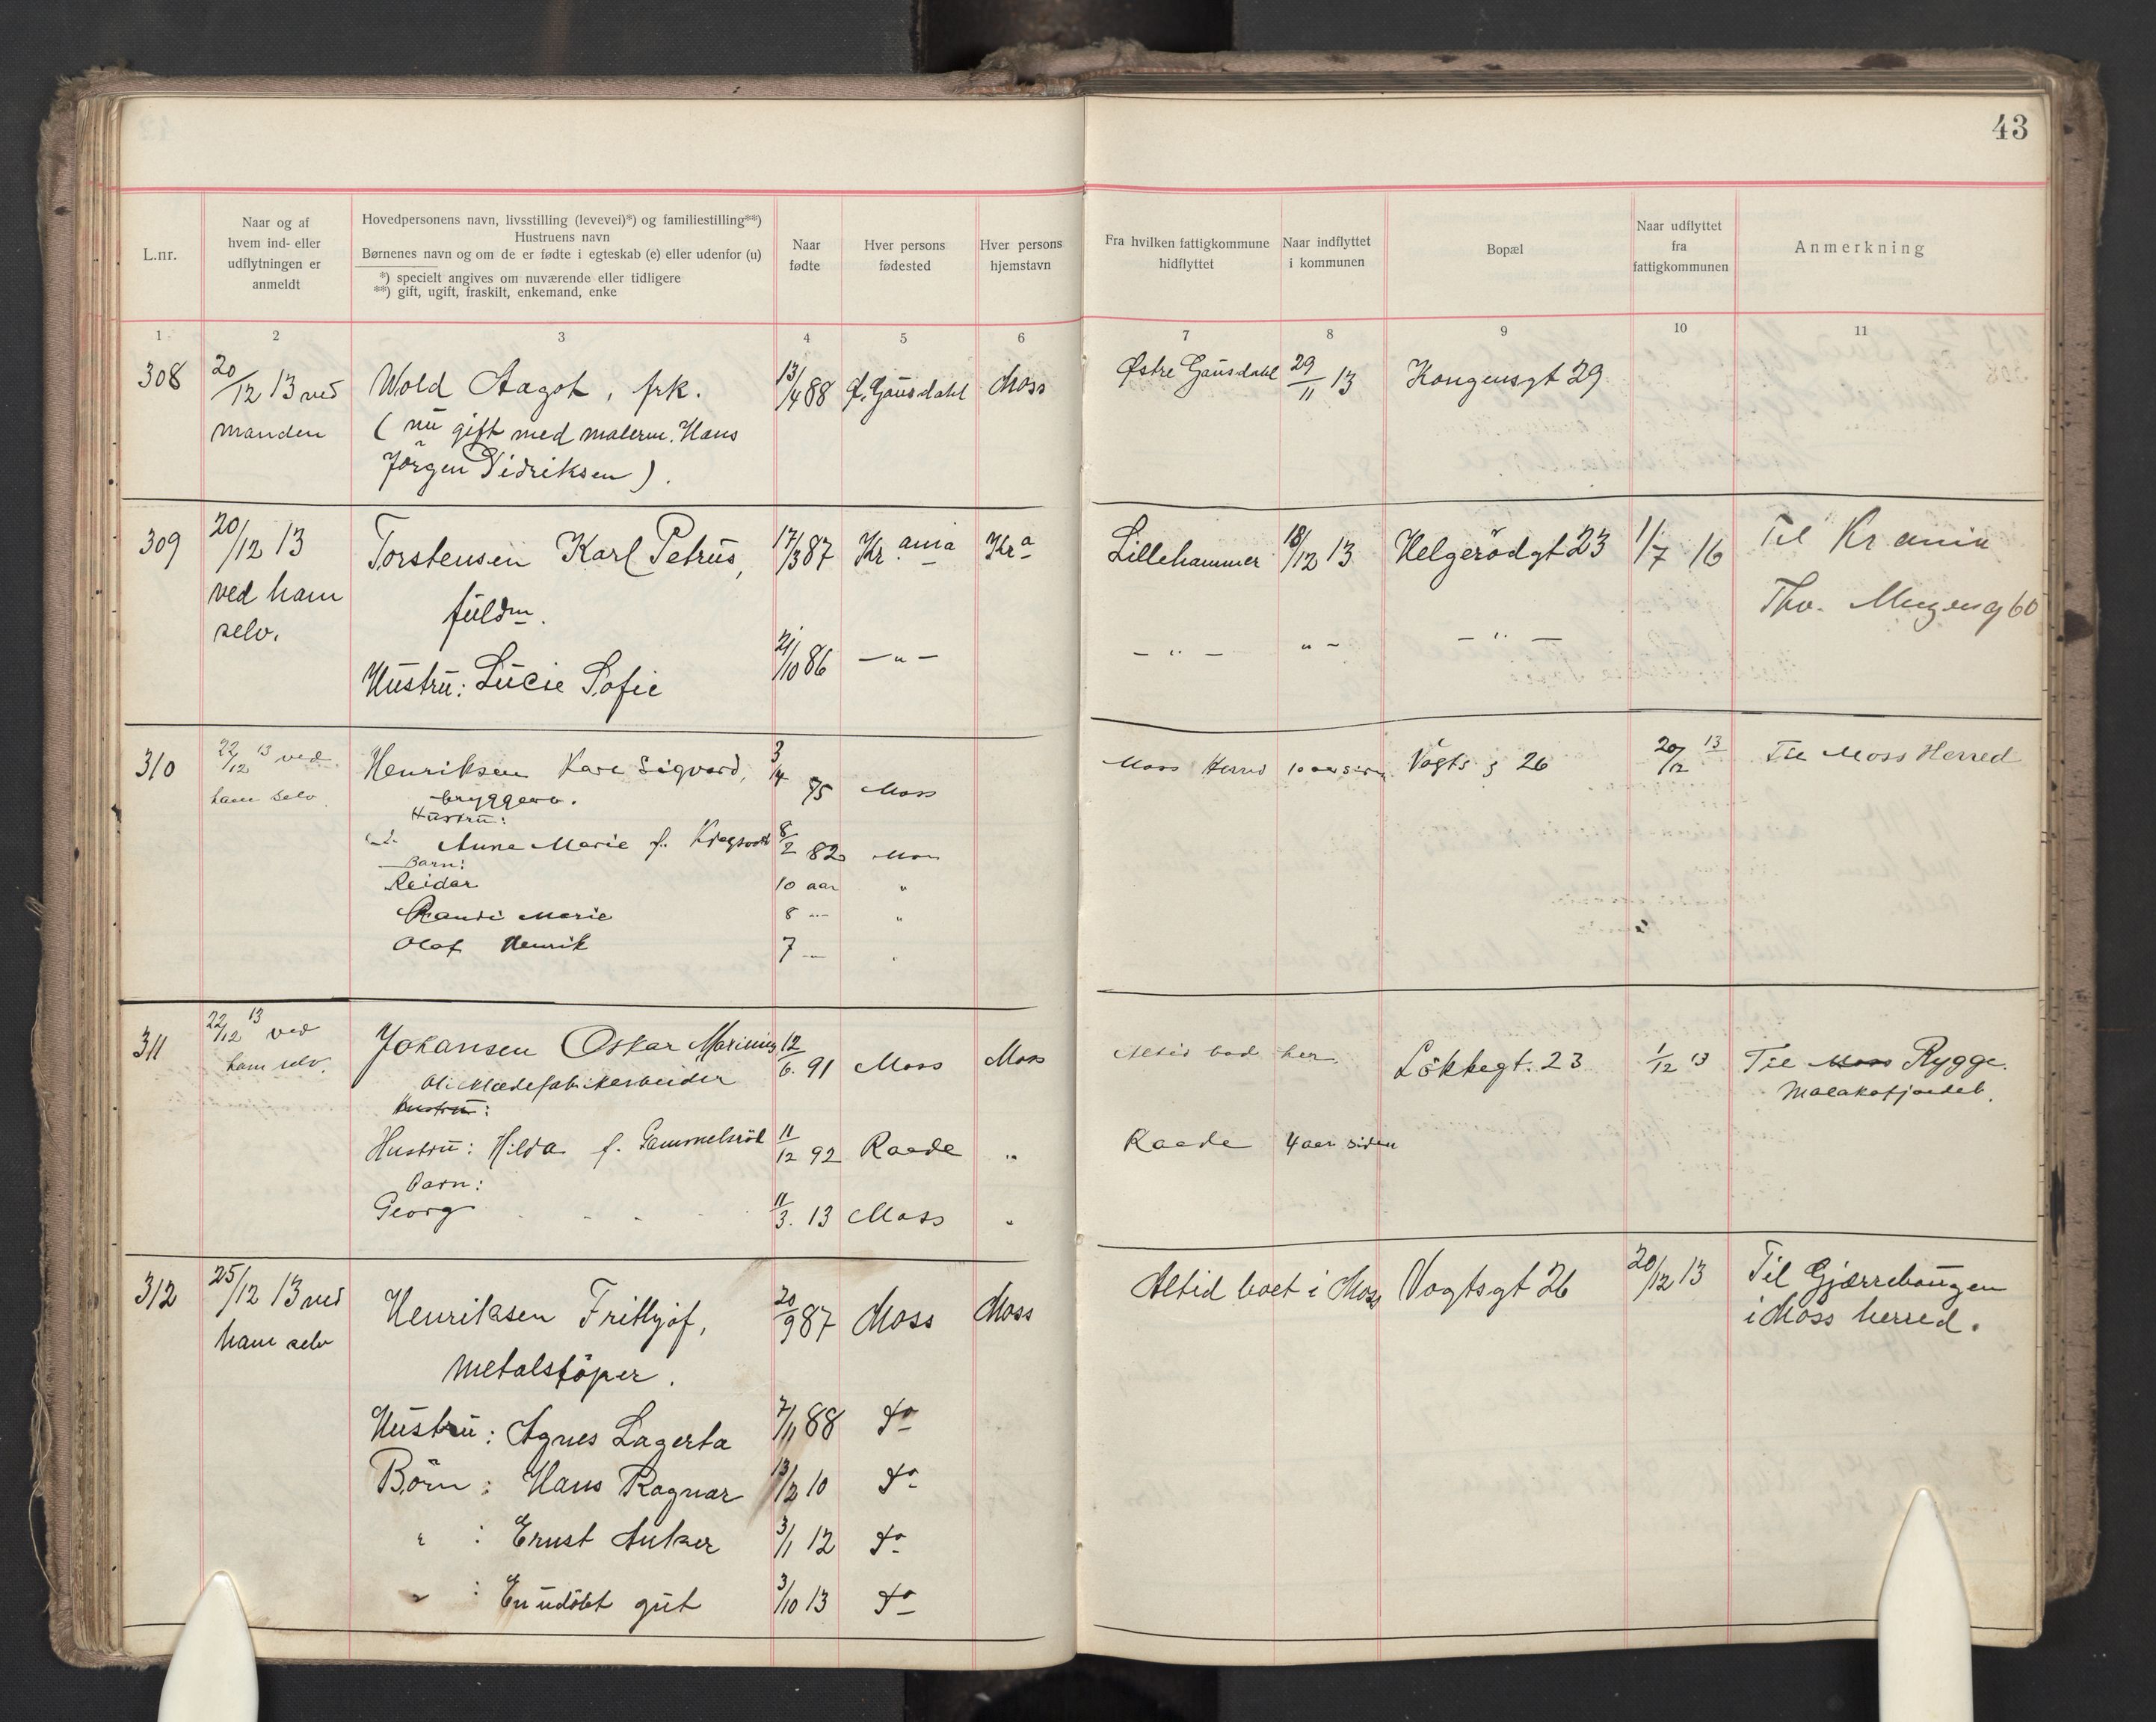 43
L.nr.
Naar og af
hvem ind- eller
udflytningen er
anmeldt
Hovedpersonens navn, livsstilling (levevei)*) og familiestilling**)
Hustruens navn
Børnenes navn og om de er fødte i egteskab (e) eller udenfor (u)
*) specielt angives om nuværende eller tidligere
**) gift, ugift, fraskilt, enkemand, enke
Naar
fødte
Hver persons
fødested
Hver persons
hjemstavn
Fra hvilken fattigkommune
hidflyttet
Naar indflyttet
i kommunen
Bopæl
Naar udflyttet
fra
fattigkommunen
Anmerkning
1 2 3 4 5 6 7 8 9 10 11
308 20/12 13 ved Wold Aagot, frk. 13/4 88 Ø. Gausdahl Moss Østre Gausdahl 29/11 13 Kongensgt 29
manden (nu gift med malerm. Hans
Jørgen Didriksen).
309 20/12 13 Torstensen Karl Petrus, 17/3 87 Kr.ania Kra Lillehammer 18/12 13 Helgerödgt 23 1/7 16 Til Krania
ved ham fuldm. Thv. Meyersg 60
selv.
Hustru: Lucie Sofie 21/10 86 — " — — " — " — — " —
310 22/12 13 ved Henriksen Kare Sigvard, 3/4 75 Moss Moss Herred 10 aar siden Vogts g 26 20/12 13 Til Moss Herred
ham selv bryggeria.
Hustru:
Anne Marie f. 8/2 82 Moss
Barn:
Reidar 10 aar "
Randi Marie 8 — "
Olaf Henrik 7 — "
311 22/12 13 ved Johansen Oskar Marinius 12/6. 91 Moss Moss Altid bod her Lökkegt. 23 1/12 13 Til Moss Rygge.
ham selv. Oliklædefabrikarbeider Malakofjordet.
Hustru:
Hustru: Hilda f. Gammelsröd 11/12 92 Raade " Raade 4 aar siden
Barn:
Georg 11/3. 13 Moss "
312 25/12 13 ved Henriksen Frithjof, 20/9 87 Moss Moss Altid boet i Moss Vogtsgt 26 20/12 13 Til Gjærrebougen
ham selv i Moss herred.
metalstöper.
Hustru: Agnes Lagerta 7/11 88 do
Börn: Hans Ragnar 13/2 10 do
" : Ernst Anker 3/1 12 do
" : En udöbt gut 3/10 13 do